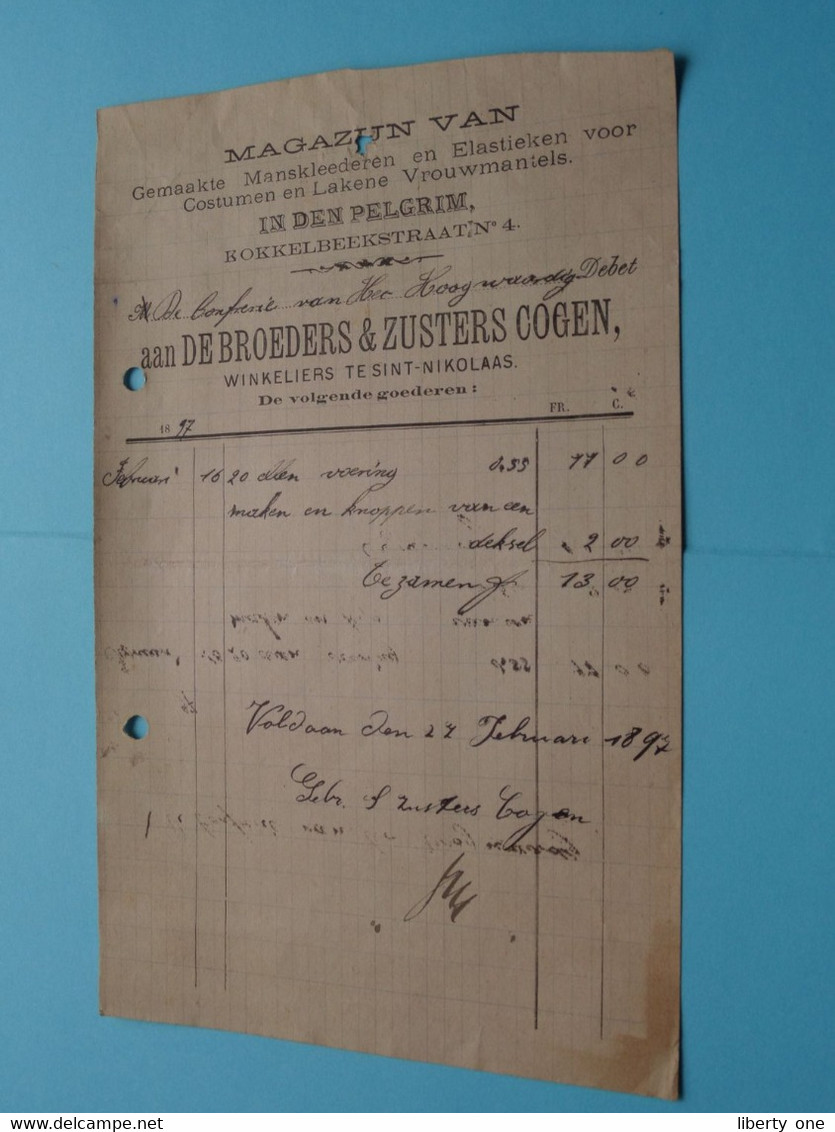 MAGAZIJN VAN
Gemaakte Manskleederen en Elastieken voor
Costumen en Lakene Vrouwmantels.
IN DEN PELGRIM,
KOKKELBEEKSTRAAT, No 4.
M De Confrerie van Het Hoogwaardig Debet
aan DE BROEDERS & ZUSTERS COGEN,
WINKELIERS TE SINT-NIKOLAAS.
De volgende goederen:
1897 FR. C.
Februari 16 20 ellen voering 0,55 11 00
maken en knoppen van een
deksel 2 00
Te zamen fr 13 00
Voldaan den 27 Februari 1897
Gebr. & zusters Cogen
liberty one